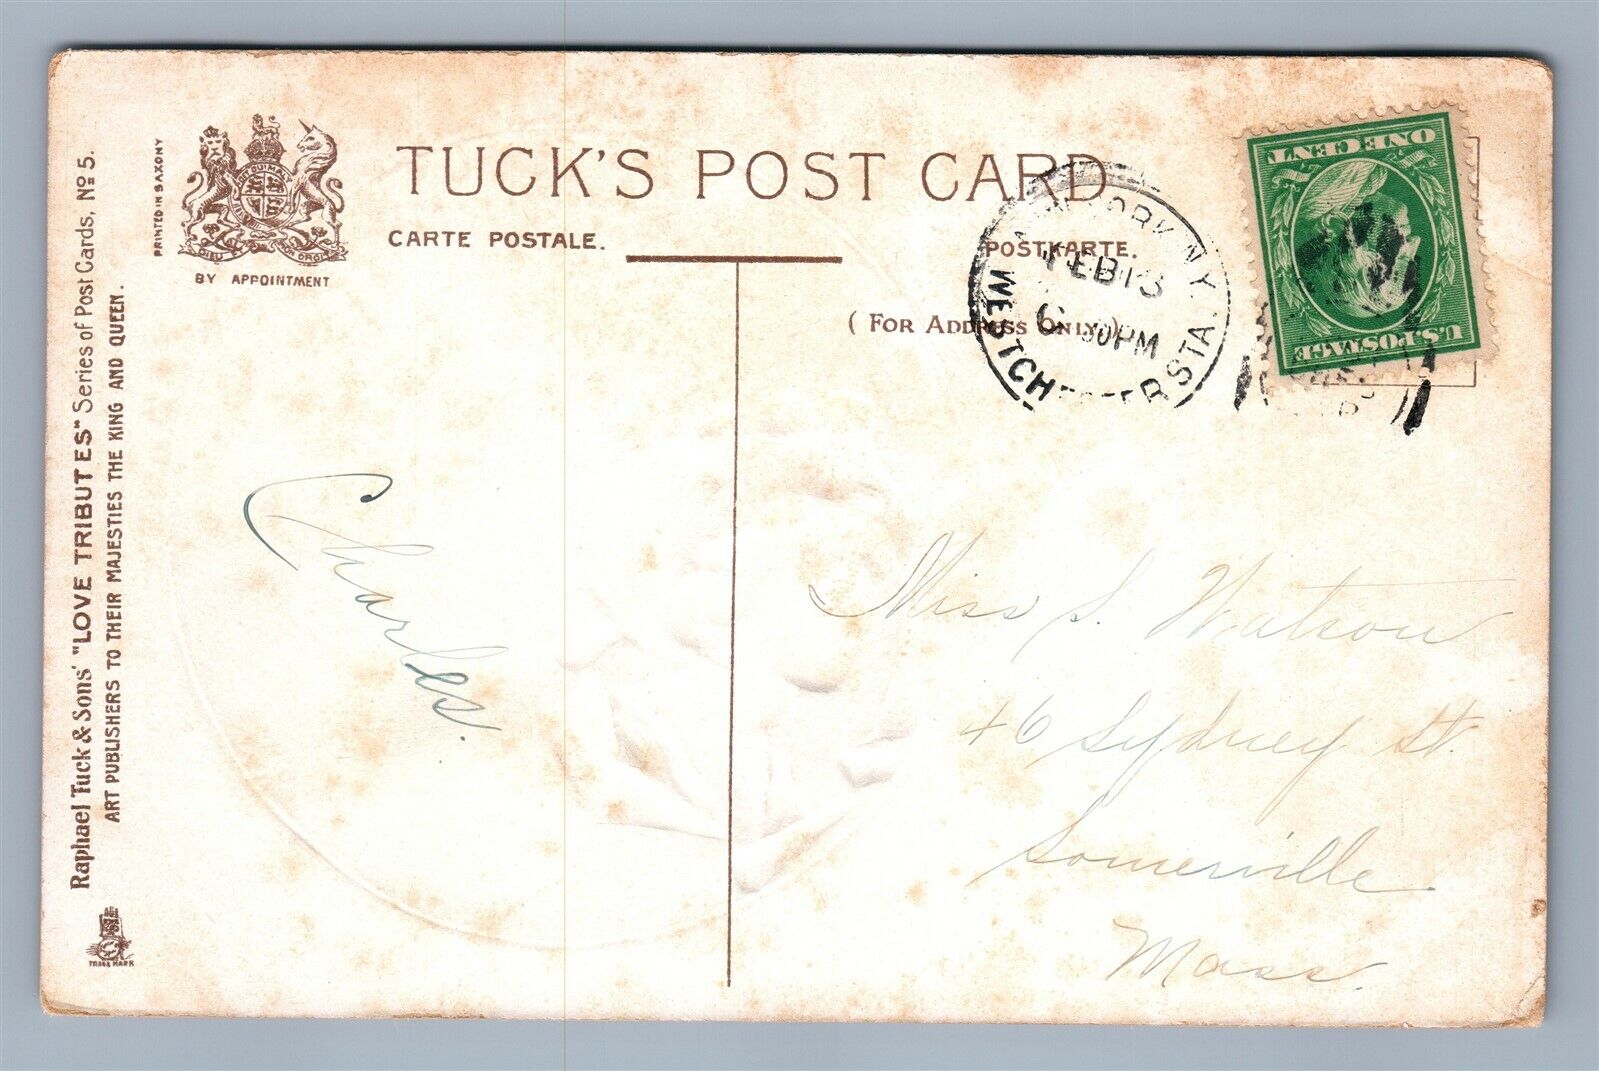 Raphael Tuck & Sons' "LOVE TRIBUTES" Series of Post Cards, No 5.
ART PUBLISHERS TO THEIR MAJESTIES THE KING AND QUEEN.
TRADE MARK
PRINTED IN SAXONY
DIEU ET MON DROIT
BY APPOINTMENT
TUCK'S POST CARD
CARTE POSTALE.
POSTKARTE.
(FOR ADDRESS ONLY.)
NEW YORK, N.Y.
FEB 13
6 30 PM
WESTCHESTER STA.
U.S. POSTAGE
ONE CENT
Charles.
Miss S. Watson
46 Sydney St.
Somerville
Mass.